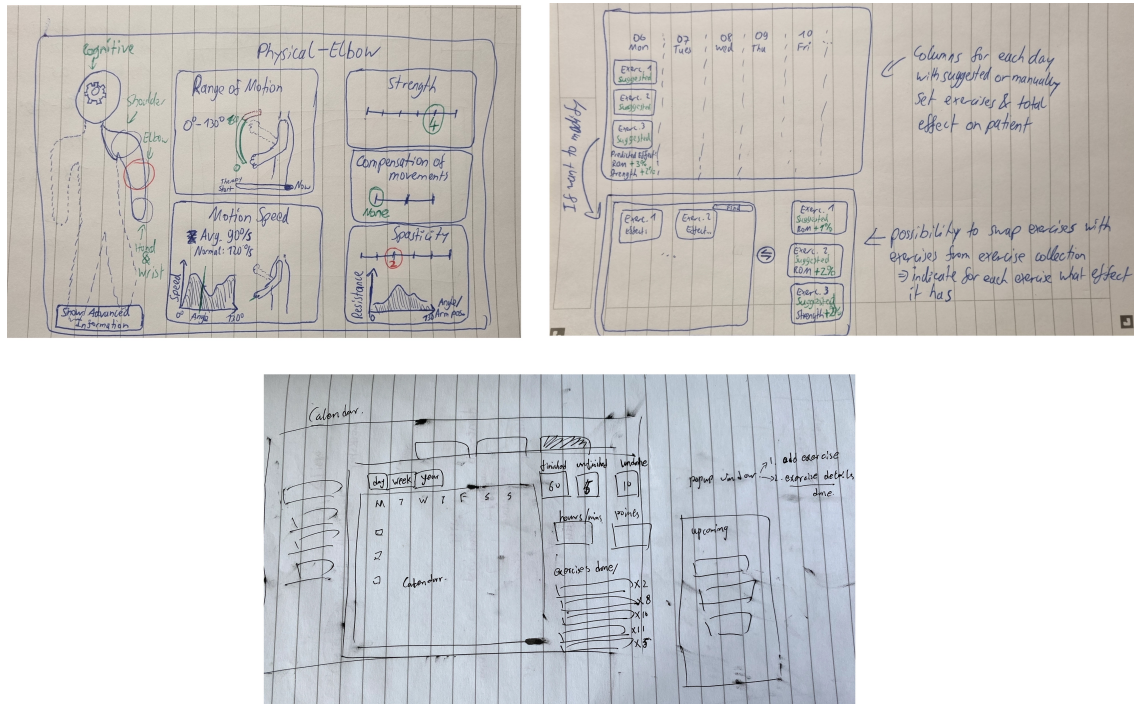 Cognitive
Physical-Elbow
Shoulder
Elbow
Hand
&
Wrist
Show Advanced
Information
Range of Motion
0°-130°
Therapy
Start
Now
Motion Speed
Avg. 90°/s
Normal: 120°/s
Speed
0°
Angle
130°
Strength
4
Compensation of
movements
None
Spasticity
2
Resistance
0
Angle/
Arm pos.
06
Mon
07
Tues
08
Wed
09
Thu
10
Fri
Exerc. 1
Suggested
Exerc. 2
Suggested
Exerc. 3
Suggested
Predicted Effect:
ROM +3%
Strength +2%
If want to modify
Columns for each day
with suggested or manually
set exercises & total
effect on patient
Exerc. 1
Effect:
Exerc. 2
Effect..
Find
...
Exerc. 1
Suggested
ROM +1%
Exerc. 2
Suggested
ROM +2%
Exerc. 3
Suggested
Strength +2%
possibility to swap exercises with
exercises from exercise collection
⇒ indicate for each exercise what effect
it has
Calendar.
day week year
M T W T F S S
Calendar.
finished unfinished undone
60 5 10
hours/mins points
exercises done/
x2
x8
x10
x11
x5
popup window
1. add exercise
2. exercise details
done
upcoming